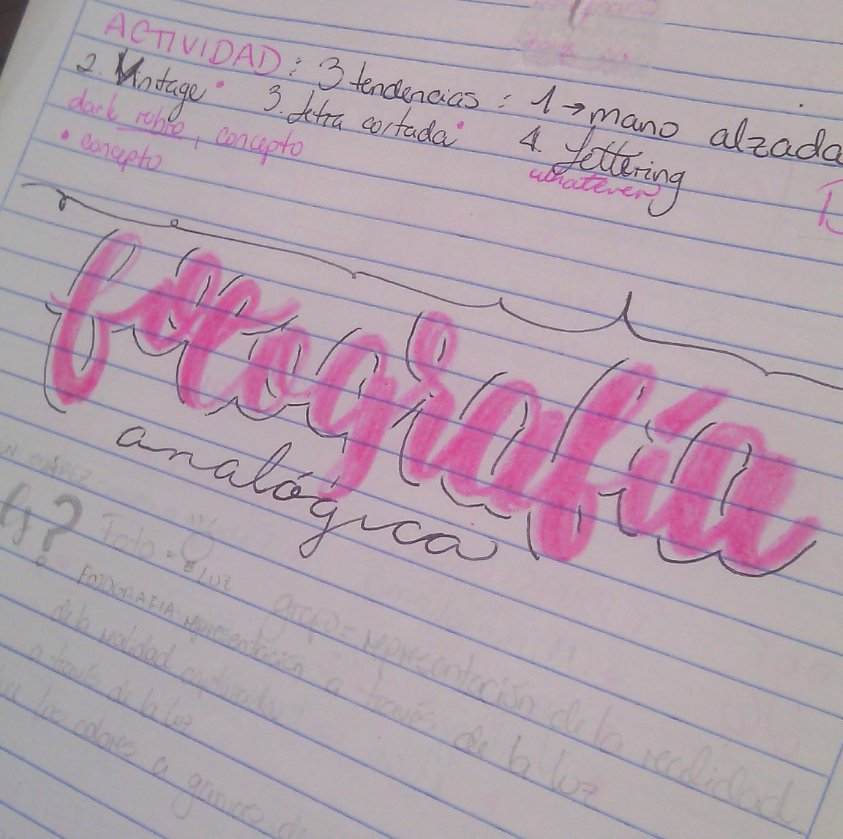 ACTIVIDAD: 3 tendencias: 1→mano alzada
2. Vintage 3. letra cortada 4. Lettering
dark, concepto whatever
• concepto
fotografía
analógica
?
Foto = LUZ
FOTOGRAFIA: representación grafo= representación de la realidad
de la realidad capturada a través de la luz
a través de la luz
los colores a